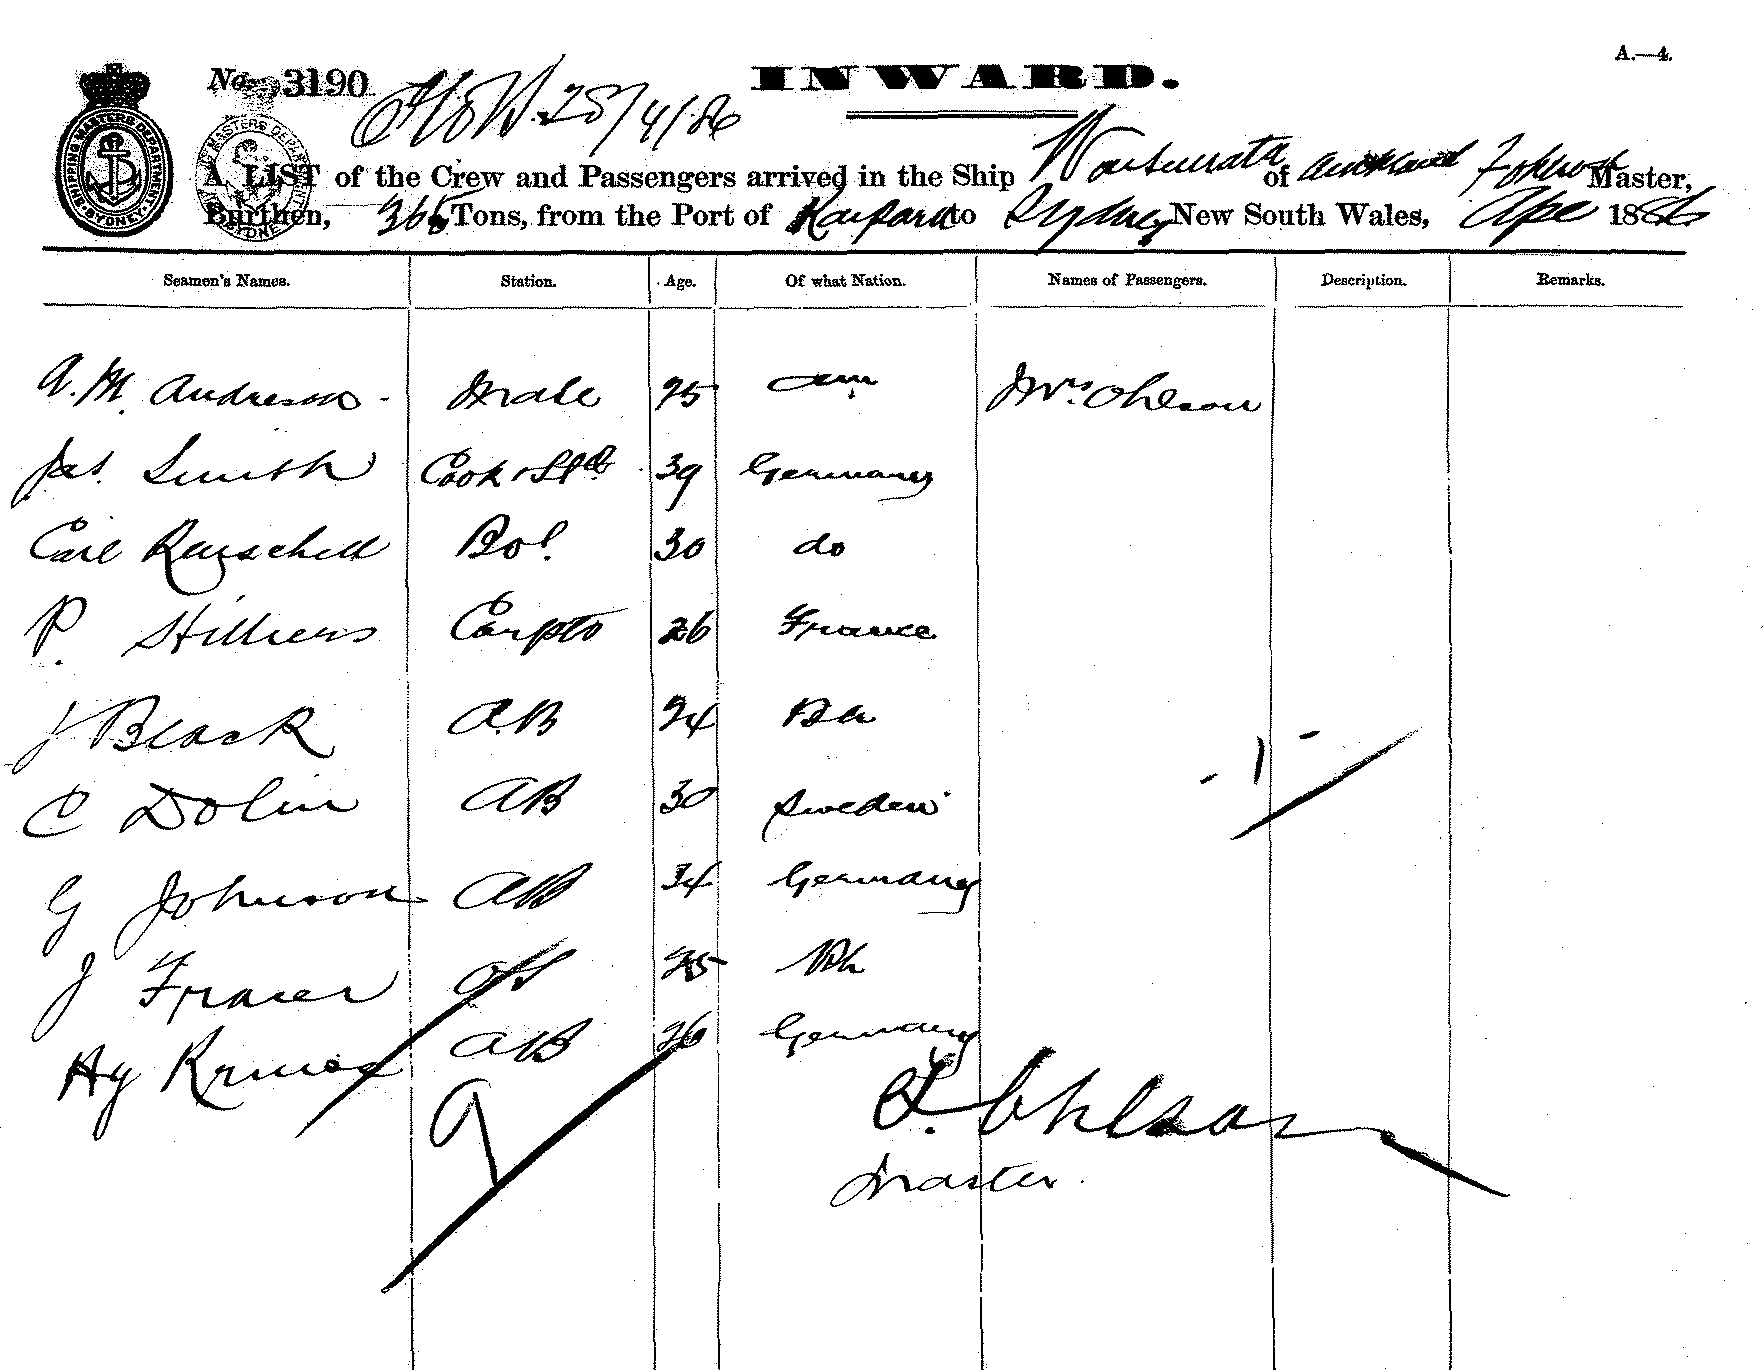 A.—4.
No. 3190 25/4/86 INWARD.
SHIPPING MASTERS DEPARTMENT SYDNEY
A LIST of the Crew and Passengers arrived in the Ship of Auckland Master,
Burthen, 365 Tons, from the Port of to Sydney New South Wales, Ape 1886
Seamen's Names. Station. Age. Of what Nation. Names of Passengers. Description. Remarks.
A. M. Andreson Mate 25 Am Mrs. Ohlson
Jas. Smith Cook & Std. 39 Germany
Carl Bos. 30 do
P. Hilliers Carptr 26 France
J Black AB 24
C Dolin AB 30 Sweden
G Johnson AB 34 Germany
J Fraser OS 25
Hy AB 26 Germany
9
1
Ohlson
Master.